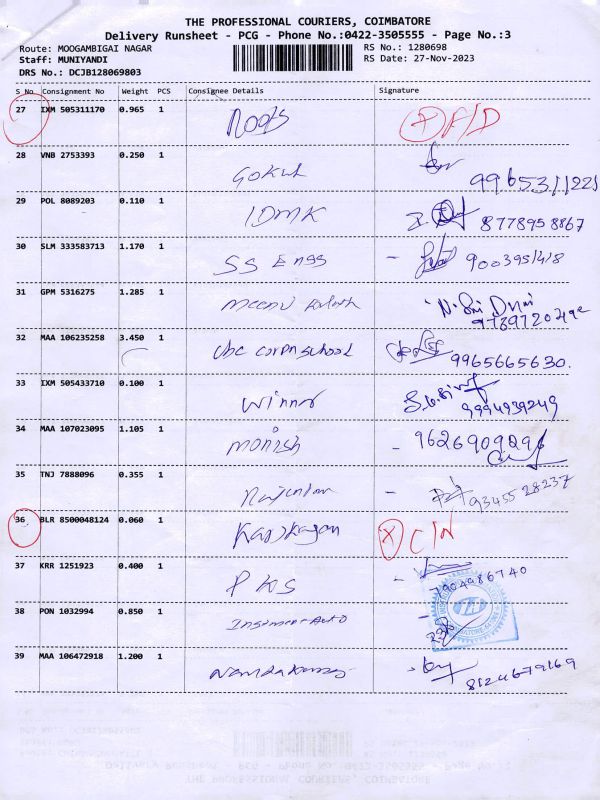 THE PROFESSIONAL COURIERS, COIMBATORE
Delivery Runsheet - PCG - Phone No.:0422-3505555 - Page No.:3
Route: MOOGAMBIGAI NAGAR RS No.: 1280698
Staff: MUNIYANDI RS Date: 27-Nov-2023
DRS No.: DCJB128069803
S No Consignment No Weight PCS Consignee Details Signature
27 IXM 505311170 0.965 1 Roots X F/D
28 VNB 2753393 0.250 1 Gokul
9965311221
29 POL 8089203 0.110 1 IDMK 8778958867
30 SLM 333583713 1.170 1 SS Engg - 9003951418
31 GPM 5316275 1.285 1 Meenu
32 MAA 106235258 3.450 1 cbc corpn school 9965665630.
33 IXM 505433710 0.100 1 Winner 9994939249
34 MAA 107023095 1.105 1 Monish - 9626909296
35 TNJ 7888096 0.355 1 - 9345528237
36 BLR 8500048124 0.060 1 X C/N
37 KRR 1251923 0.400 1 PKS - 7904986740
38 PON 1032994 0.850 1 Auto -
39 MAA 106472918 1.200 1 Nandakumar 8124679169